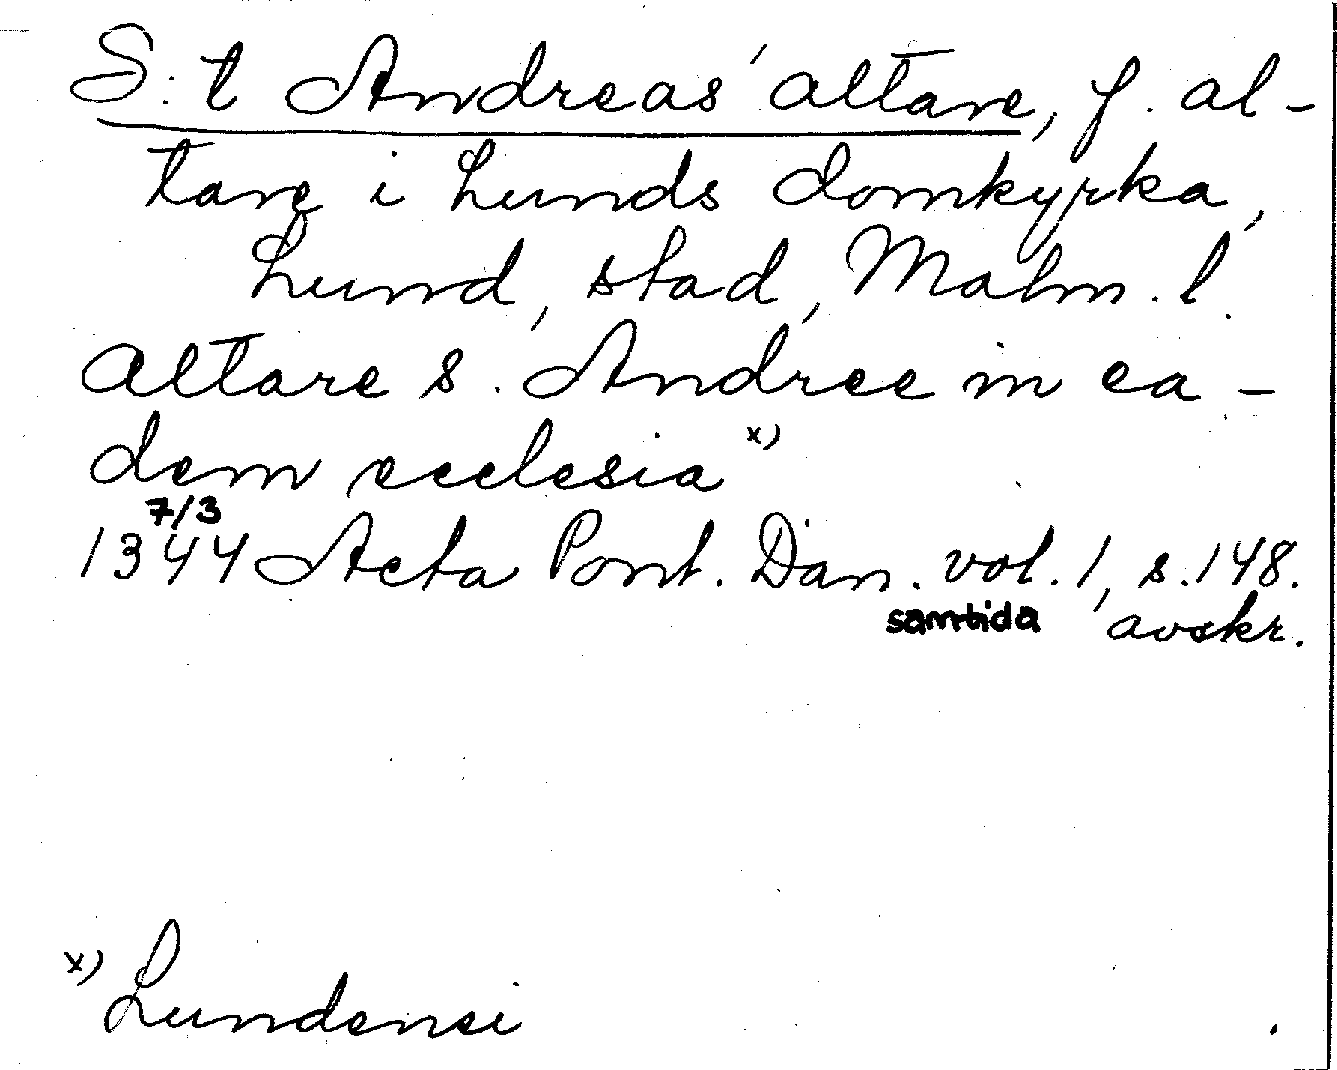 S:t Andreas' altare, f. al-
tare i Lunds domkyrka,
Lund, stad, Malm. l.
Altare s. Andree in ea-
dem ecclesia x)
7/3
1344 Acta Pont. Dan. vol. 1, s. 148.
samtida avskr.
x) Lundensi